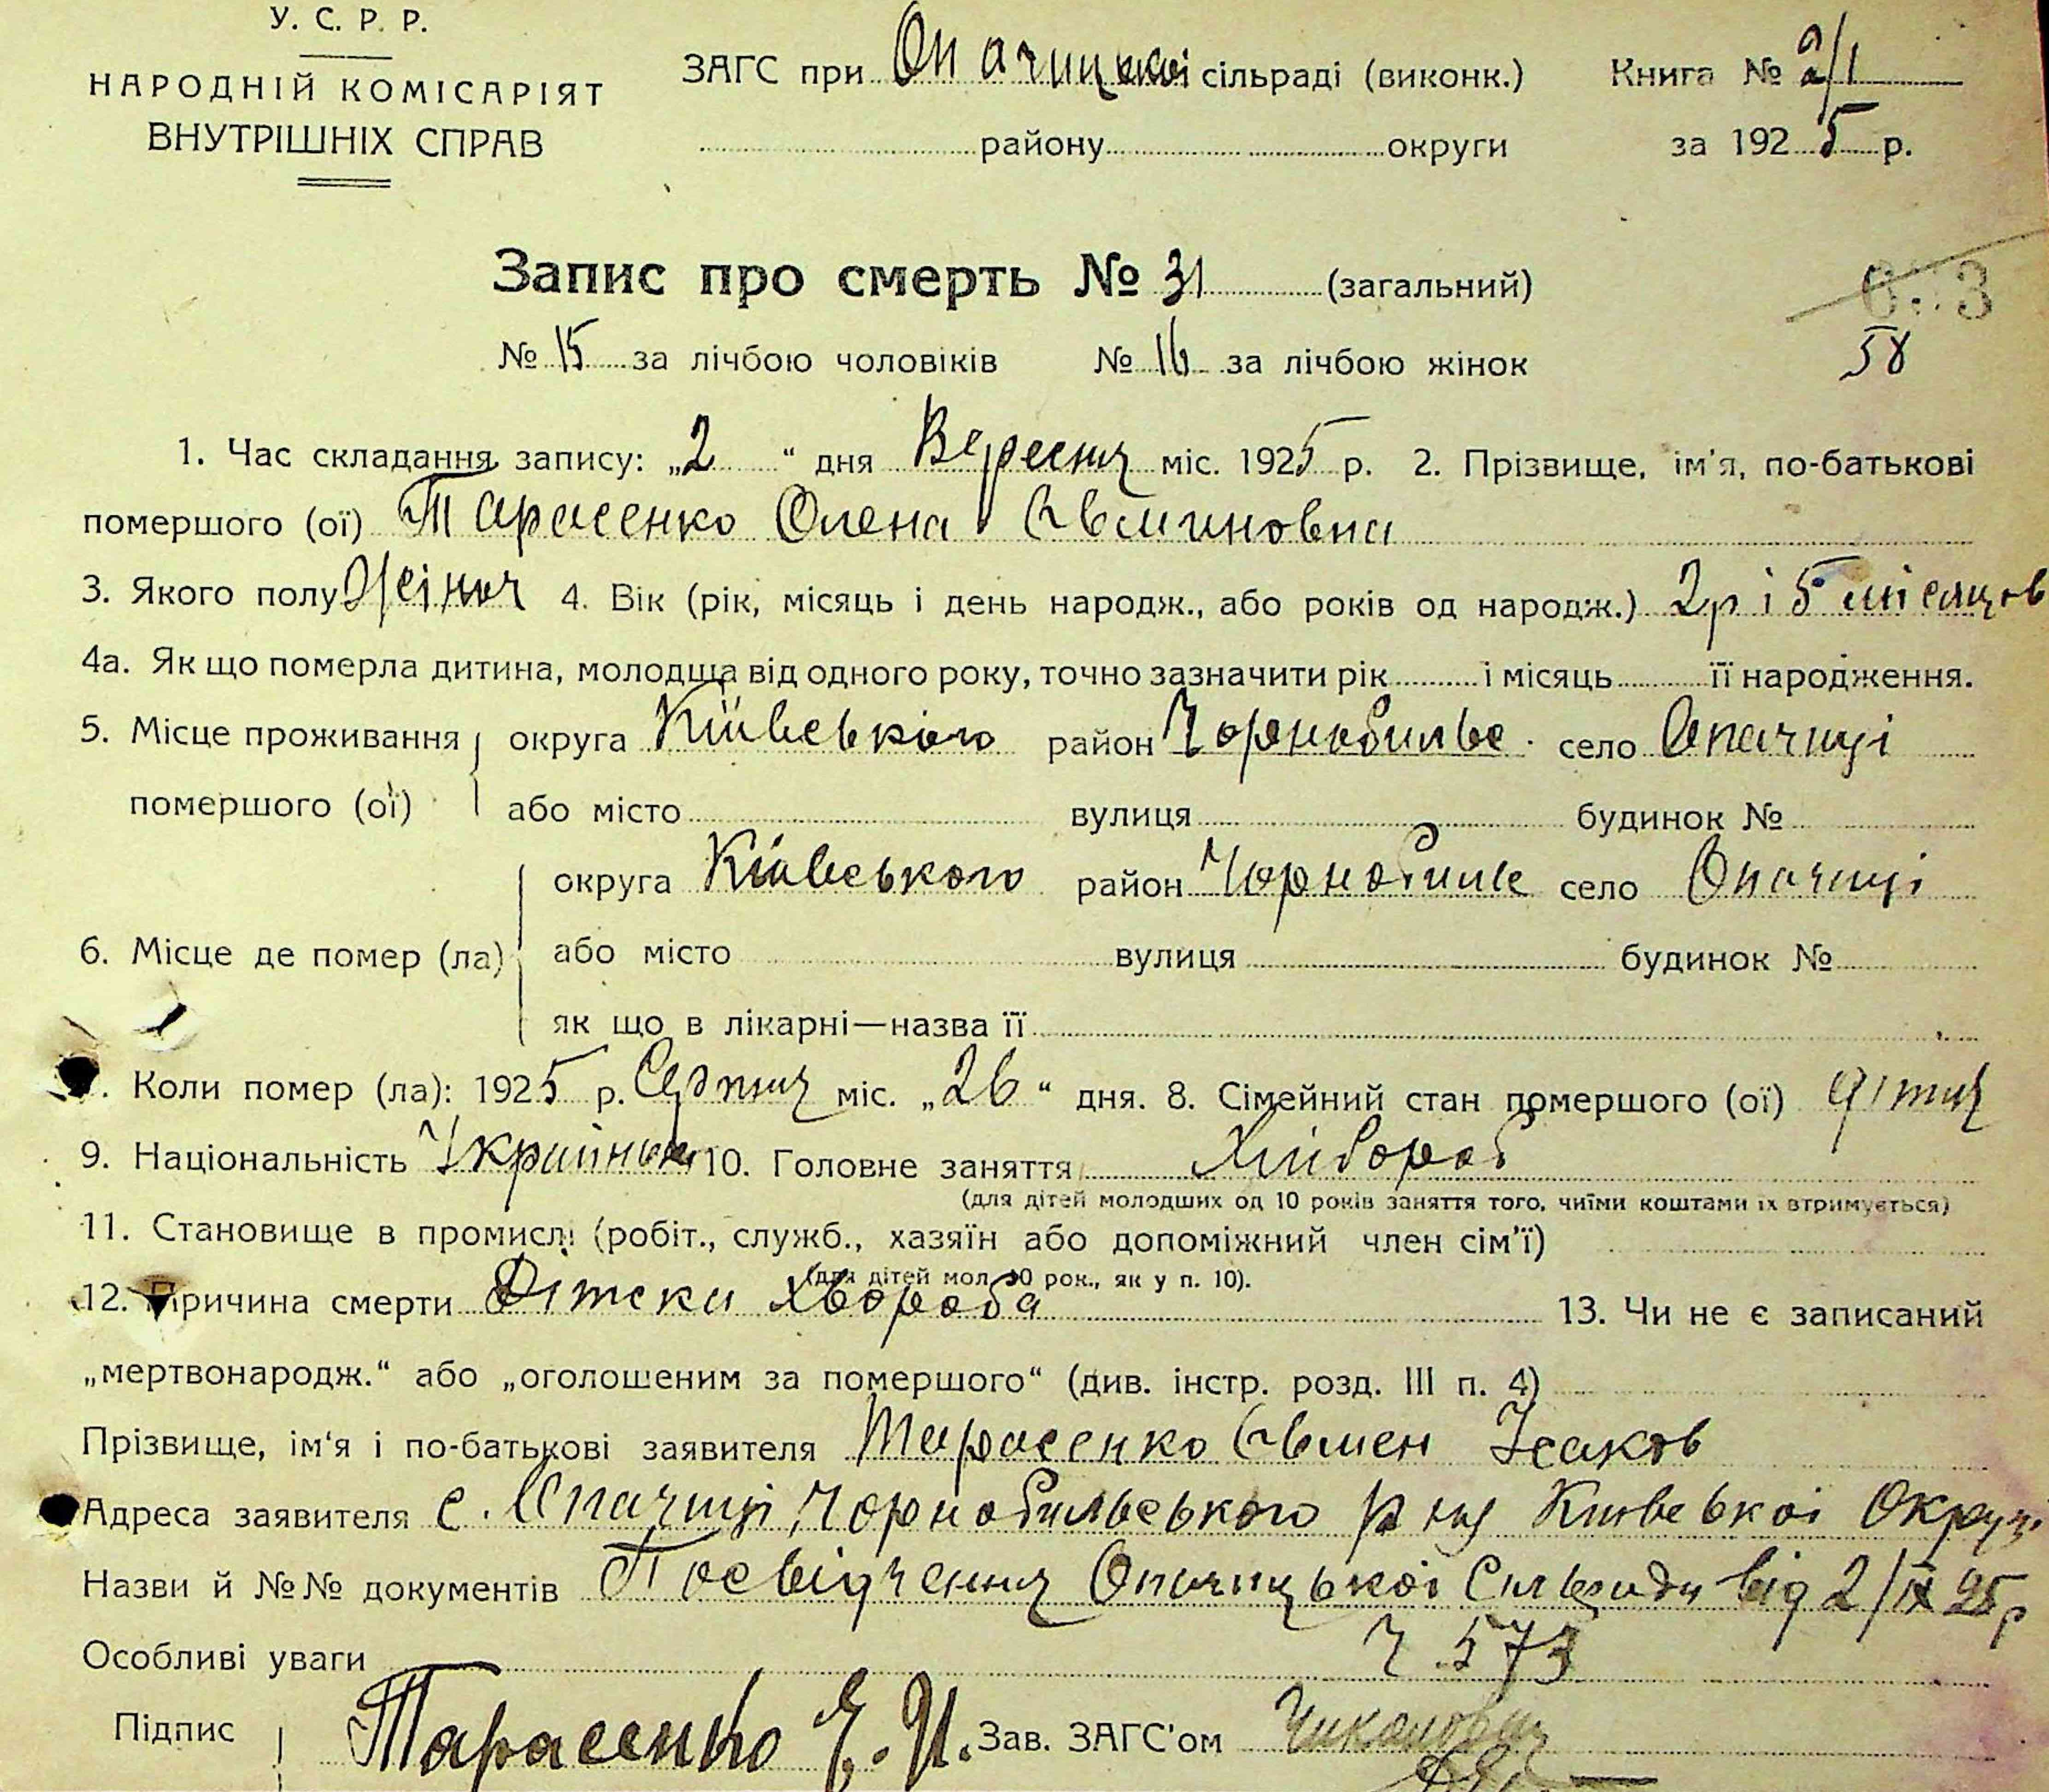 У. С. Р. Р.
НАРОДНІЙ КОМІСАРІЯТ
ВНУТРІШНІХ СПРАВ
ЗАГС при Опачицькоі сільраді (виконк.)
району округи
Книга № 2/1
за 1925 р.
Запис про смерть № 31 (загальний)
№ 15 за лічбою чоловіків № 16 за лічбою жінок
58
1. Час складання запису: „2“ дня Вересня міс. 1925 р. 2. Прізвище, ім'я, по-батькові
помершого (ої) Тарасенко Олена
3. Якого полу Жіноч 4. Вік (рік, місяць і день народж., або років од народж.) 2р і 5 місяцов
4а. Як що померла дитина, молодща від одного року, точно зазначити рік і місяць її народження.
5. Місце проживання округа Київського район Чорнобильс. село Опачиці
помершого (ої) або місто вулиця будинок №
округа Київського район село Опачиці
6. Місце де помер (ла) або місто вулиця будинок №
як що в лікарні—назва її
7. Коли помер (ла): 1925 р. Серпня міс. „26“ дня. 8. Сімейний стан помершого (ої) дітя
9. Національність 10. Головне заняття Хлібороб
(для дітей молодших од 10 років заняття того, чиїми коштами їх втримується)
11. Становище в промислі (робіт., служб., хазяїн або допоміжний член сім'ї)
(для дітей мол. 10 рок., як у п. 10).
12. Причина смерти Дітска хвороба 13. Чи не є записаний
„мертвонародж.“ або „оголошеним за помершого“ (див. інстр. розд. III п. 4)
Прізвище, ім'я і по-батькові заявителя Тарасенко Ісаков
Адреса заявителя с. Опачиці, Чорнобильського р ну Київськоі Округи
Назви й №№ документів Посвідчення Опачицькоі Сильради від 2/IX 25р
Особливі уваги Ч 573
Підпис Тарасенко Є. И. Зав. ЗАГС'ом